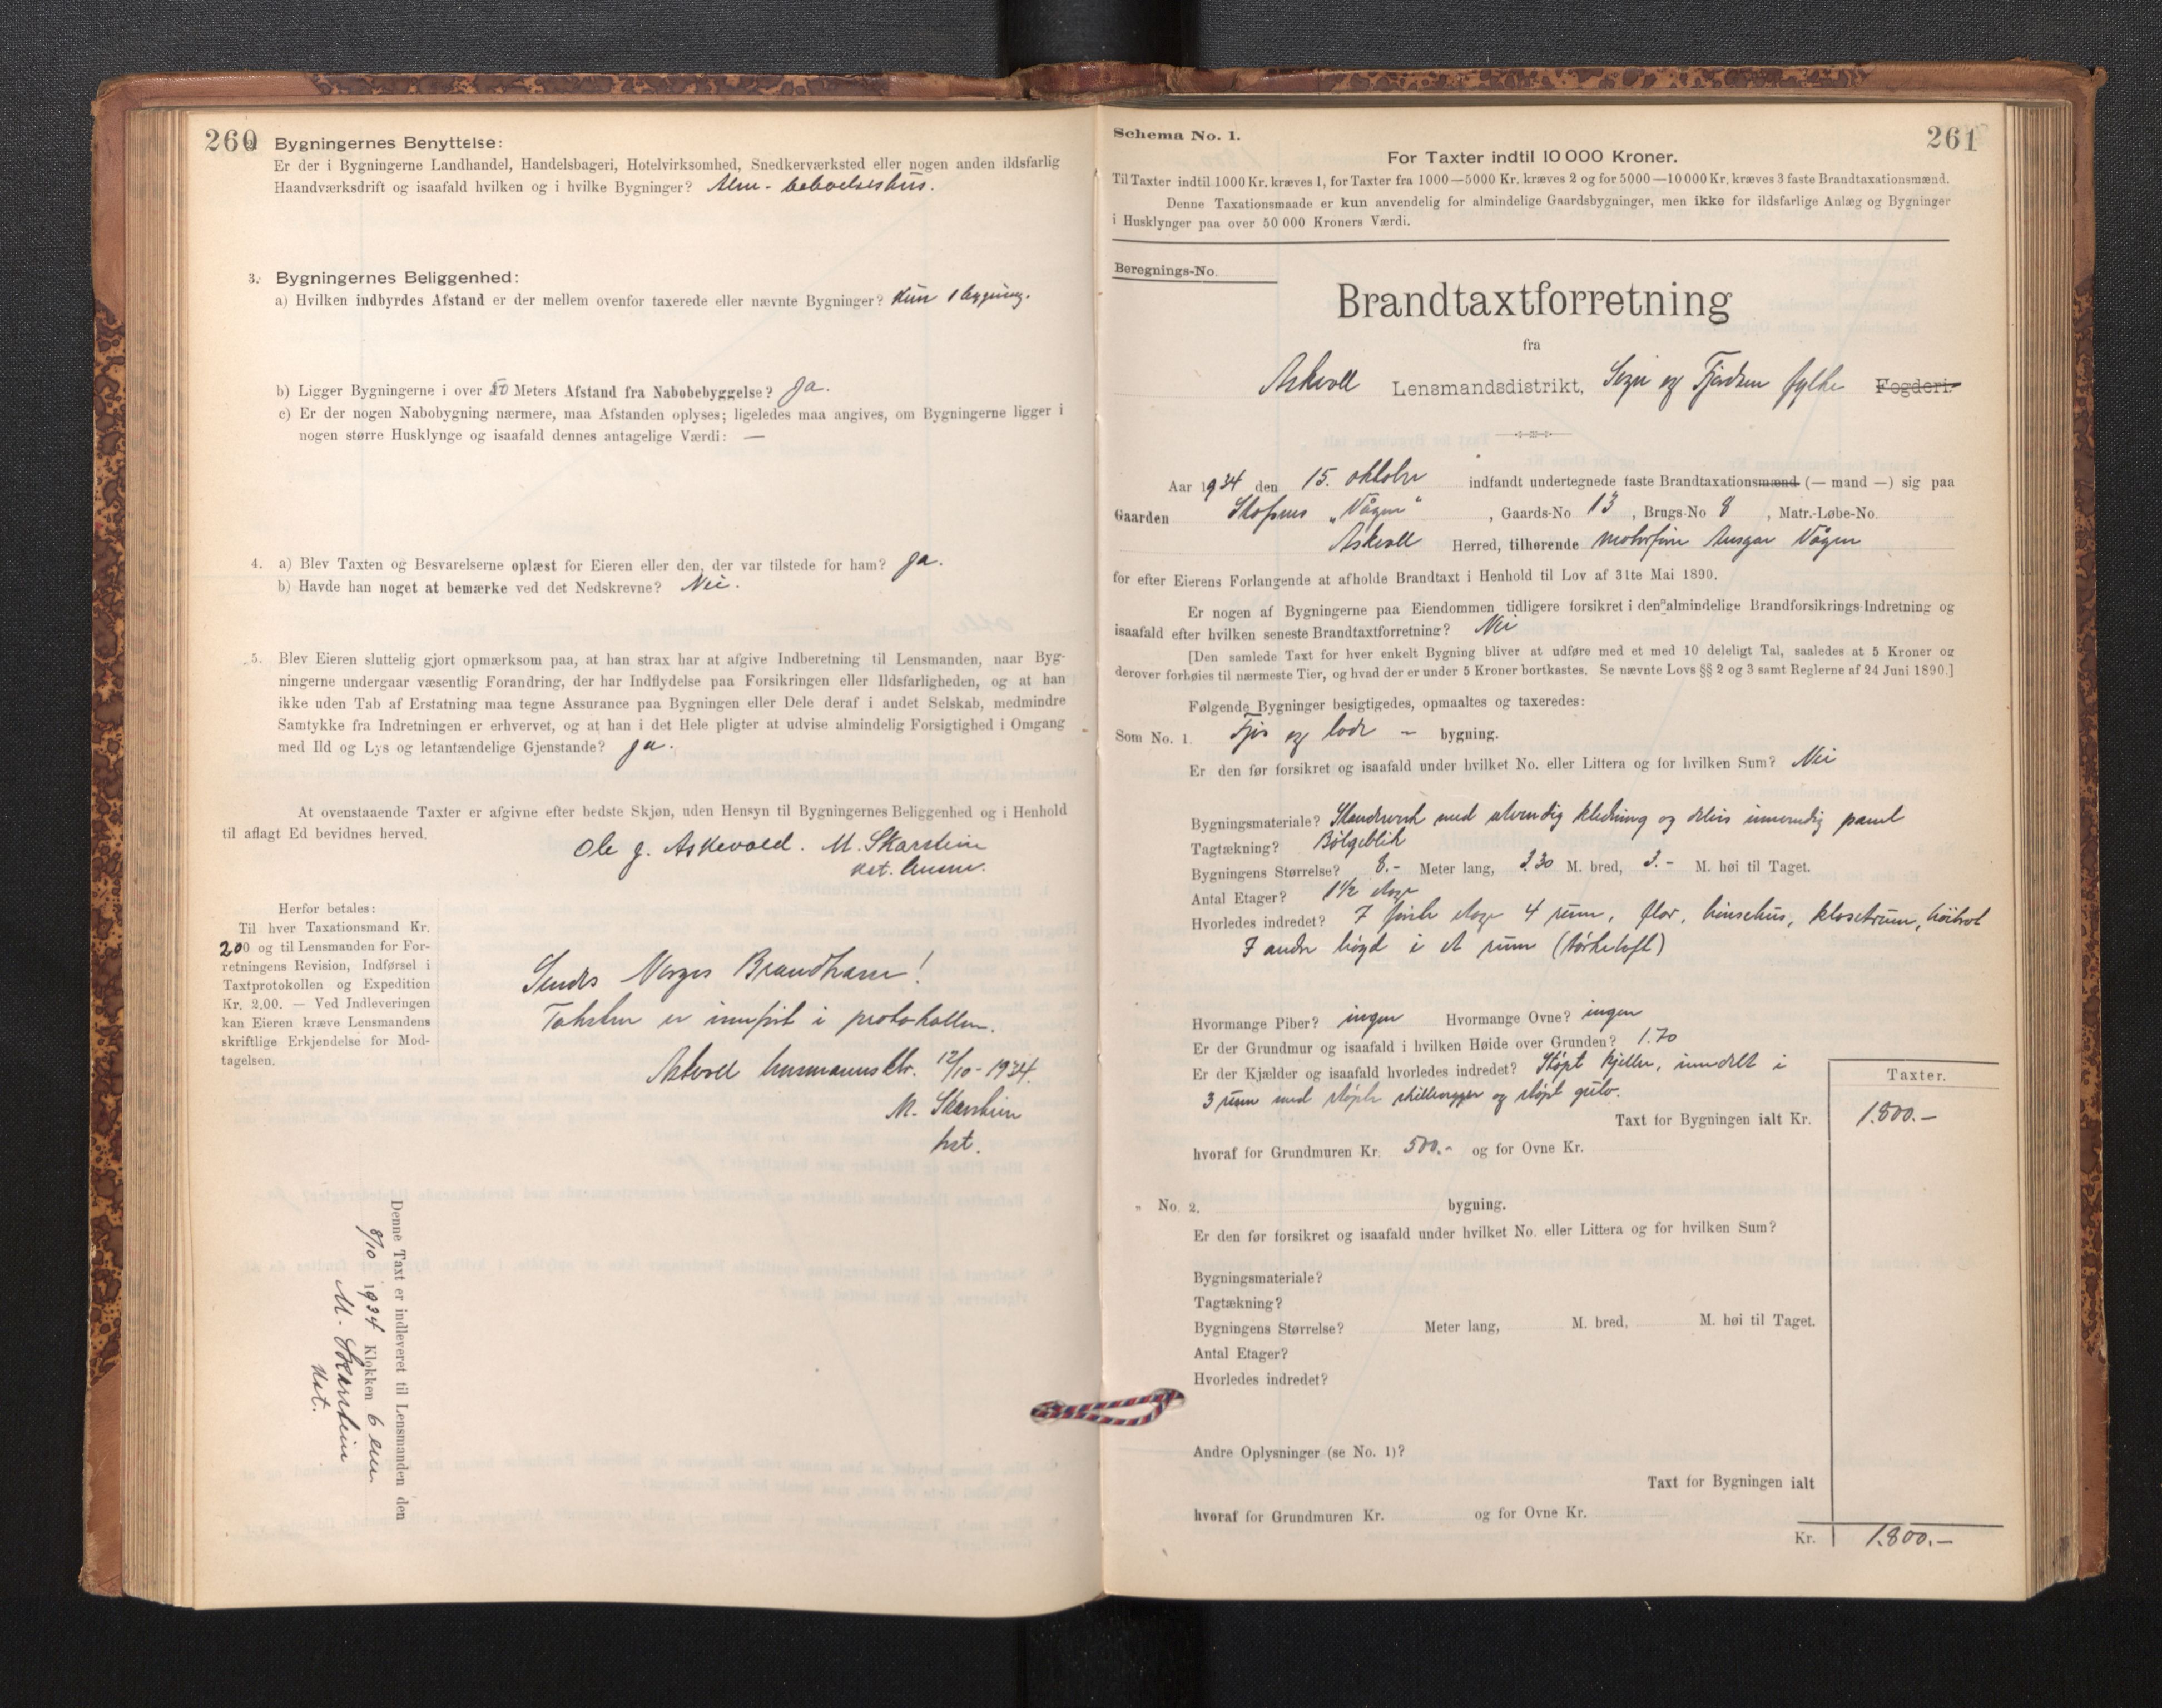 260
2. Bygningernes Benyttelse:
Er der i Bygningerne Landhandel, Handelsbageri, Hotelvirksomhed, Snedkerværksted eller nogen anden ildsfarlig
Haandværksdrift og isaafald hvilken og i hvilke Bygninger? Alm-
3. Bygningernes Beliggenhed:
a) Hvilken indbyrdes Afstand er der mellem ovenfor taxerede eller nævnte Bygninger? Kun 1 bygning.
b) Ligger Bygningerne i over 50 Meters Afstand fra Nabobebyggelse? Ja.
c) Er der nogen Nabobygning nærmere, maa Afstanden oplyses; ligeledes maa angives, om Bygningerne ligger i
nogen større Husklynge og isaafald dennes antagelige Værdi: —
4. a) Blev Taxten og Besvarelserne oplæst for Eieren eller den, der var tilstede for ham? Ja.
b) Havde han noget at bemærke ved det Nedskrevne? Nei.
5. Blev Eieren sluttelig gjort opmærksom paa, at han strax har at afgive Indberetning til Lensmanden, naar Byg-
ningerne undergaar væsentlig Forandring, der har Indflydelse paa Forsikringen eller Ildsfarligheden, og at han
ikke uden Tab af Erstatning maa tegne Assurance paa Bygningen eller Dele deraf i andet Selskab, medmindre
Samtykke fra Indretningen er erhvervet, og at han i det Hele pligter at udvise almindelig Forsigtighed i Omgang
med Ild og Lys og letantændelige Gjenstande? Ja.
At ovenstaaende Taxter er afgivne efter bedste Skjøn, uden Hensyn til Bygningernes Beliggenhed og i Henhold
til aflagt Ed bevidnes herved.
Ole J. Askevold. M. Skarstein
Herfor betales:
Til hver Taxationsmand Kr.
200 og til Lensmanden for For-
retningens Revision, Indførsel i
Taxtprotokollen og Expedition
Kr. 2.00. — Ved Indleveringen
kan Eieren kræve Lensmandens
skriftlige Erkjendelse for Mod-
tagelsen.
Sendes Norges Brandkasse!
Taksten er innført i protokollen.
Askvoll lensmannsktr. 12/10-1934.
M. Skarstein
kst.
Denne Taxt er indleveret til Lensmanden den
8/10 1934 Klokken 6 em.
M. Skarstein
kst.
Schema No. 1.
261
For Taxter indtil 10 000 Kroner.
Til Taxter indtil 1000 Kr. kræves 1, for Taxter fra 1000—5000 Kr. kræves 2 og for 5000—10000 Kr. kræves 3 faste Brandtaxationsmænd.
Denne Taxationsmaade er kun anvendelig for almindelige Gaardsbygninger, men ikke for ildsfarlige Anlæg og Bygninger
i Husklynger paa over 50 000 Kroners Værdi.
Beregnings-No.
Brandtaxtforretning
fra
Askvoll Lensmandsdistrikt, Sogn og Fjordane fylke Fogderi.
Aar 1934 den 15. oktober indfandt undertegnede faste Brandtaxationsmænd (— mand —) sig paa
Gaarden "Vågen", Gaards-No 13, Brugs-No 8, Matr.-Løbe-No.
Askvoll Herred, tilhørende Ansgar Vågen
for efter Eierens Forlangende at afholde Brandtaxt i Henhold til Lov af 31te Mai 1890.
Er nogen af Bygningerne paa Eiendommen tidligere forsikret i den almindelige Brandforsikrings-Indretning og
isaafald efter hvilken seneste Brandtaxtforretning? Nei
[Den samlede Taxt for hver enkelt Bygning bliver at udføre med et med 10 deleligt Tal, saaledes at 5 Kroner og
derover forhøies til nærmeste Tier, og hvad der er under 5 Kroner bortkastes. Se nævnte Lovs §§ 2 og 3 samt Reglerne af 24 Juni 1890.]
Følgende Bygninger besigtigedes, opmaaltes og taxeredes:
Som No. 1. Fjøs og lade - bygning.
Er den før forsikret og isaafald under hvilket No. eller Littera og for hvilken Sum? Nei
Bygningsmateriale? Standverk med utvendig kledning og delvis innvendig panel
Tagtækning? Bølgeblik
Bygningens Størrelse? 8.- Meter lang, 3.30 M. bred, 3.- M. høi til Taget.
Antal Etager? 1½ etage
Hvorledes indredet? I første etage 4 rum, flor, hønsehus, klosetrum,
I andre høgd i et rum (tørkeloft)
Hvormange Piber? ingen Hvormange Ovne? ingen
Er der Grundmur og isaafald i hvilken Høide over Grunden? 1.70
Er der Kjælder og isaafald hvorledes indredet? Støpt kjeller, inndelt i
3 rum med støpte skillevegger og støpt gulv.
Taxter.
Taxt for Bygningen ialt Kr. 1.800.—
hvoraf for Grundmuren Kr. 500.- og for Ovne Kr.
" No. 2. bygning.
Er den før forsikret og isaafald under hvilket No. eller Littera og for hvilken Sum?
Bygningsmateriale?
Tagtækning?
Bygningens Størrelse? Meter lang, M. bred, M. høi til Taget.
Antal Etager?
Hvorledes indredet?
Andre Oplysninger (se No. 1)?
Taxt for Bygningen ialt
hvoraf for Grundmuren Kr. og for Ovne Kr.
Kr. 1.800.—